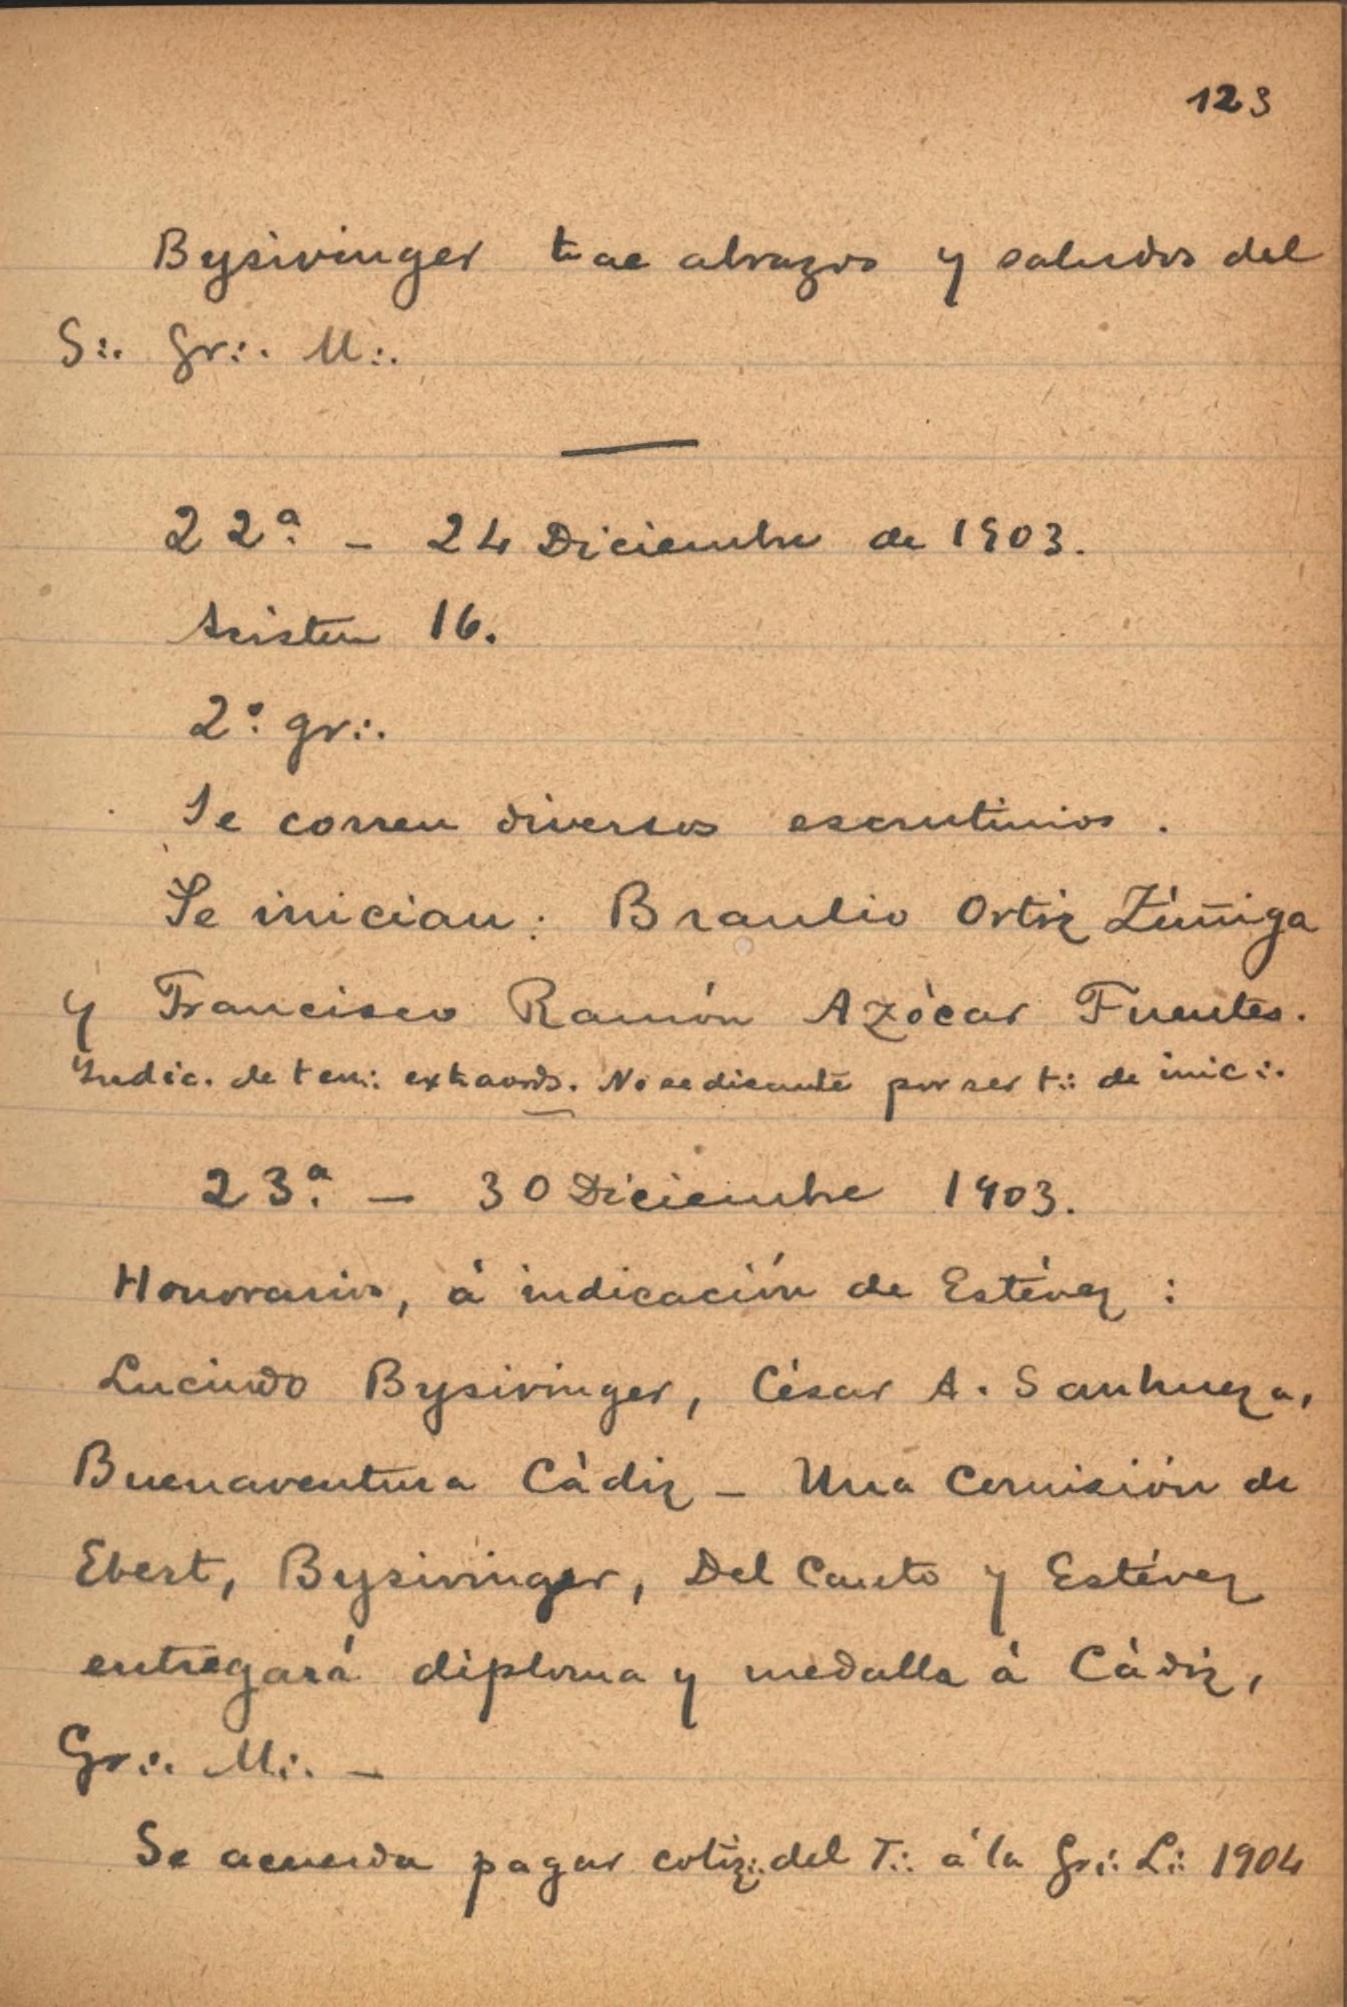 123
Bysivinger trae abrazos y saludos del
S∴ Gr∴ M∴
22ª. — 24 Diciembre de 1903.
Asisten 16.
2º. gr∴
Se corren diversos escrutinios.
Se inician: Braulio Ortiz Zúñiga
y Francisco Ramón Azócar Fuentes.
Indic. de ten∴ extraord. No se discute por ser t∴ de inic∴
23ª. — 30 Diciembre 1903.
Honorarios, á indicación de Estévez:
Lucindo Bysivinger, César A. Sanhueza,
Buenaventura Cádiz — Una Comisión de
Ebert, Bysivinger, Del Canto y Estévez
entregará diploma y medalla á Cádiz,
Gr∴ M∴ —
Se acuerda pagar cotiz∴ del T∴ á la Gr∴ L∴ 1904